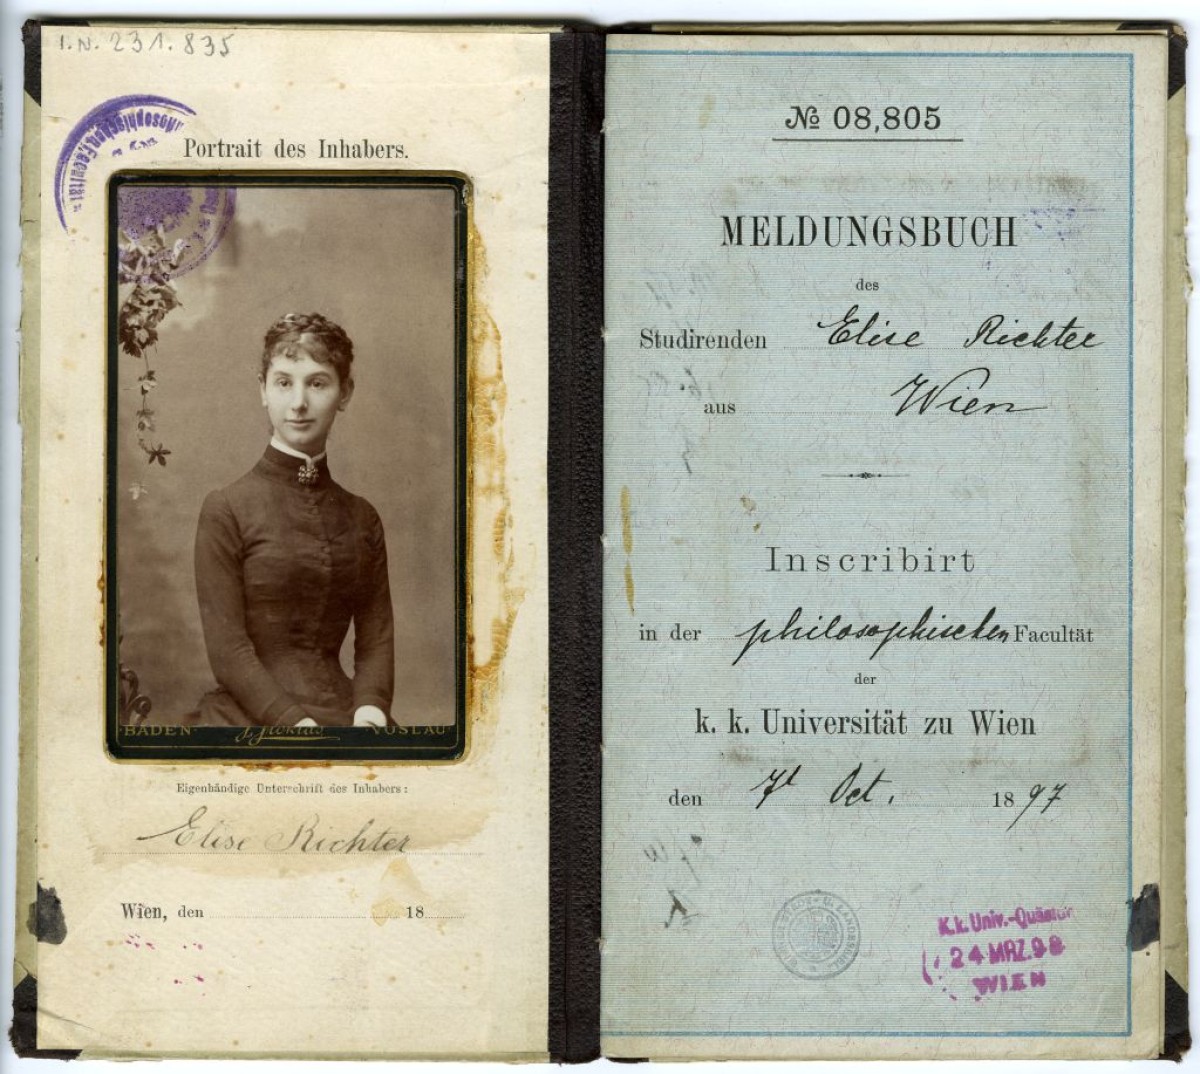 I.N. 231.835
philosophischen Facultät
Portrait des Inhabers.
BADEN
VÖSLAU
Eigenhändige Unterschrift des Inhabers:
Elise Richter
Wien, den 18
№ 08,805
MELDUNGSBUCH
des
Studirenden Elise Richter
aus Wien
Inscribirt
in der philosophischen Facultät
der
k. k. Universität zu Wien
den 7t Oct. 1897
K.k. Univ.-Quästur
24 MRZ. 98
WIEN